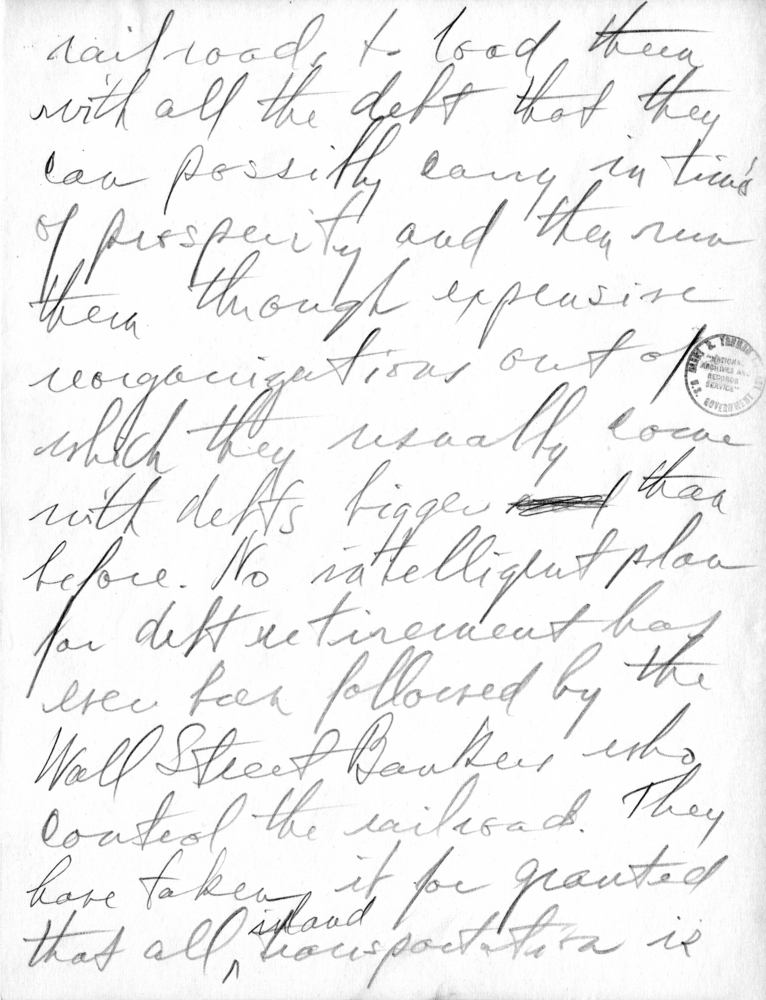 railroads to load them
with all the debt that they
can possibly carry in times
of prosperity and then run
them through expensive
reorganizations out of
which they usually come
with debts bigger than
before. No intelligent plan
for debt retirement has
ever been followed by the
Wall Street Bankers who
control the railroads. They
have taken it for granted
that all inland transportation is
HARRY S. TRUMAN LIBRARY
"NATIONAL
ARCHIVES AND
RECORDS
SERVICE"
U.S. GOVERNMENT